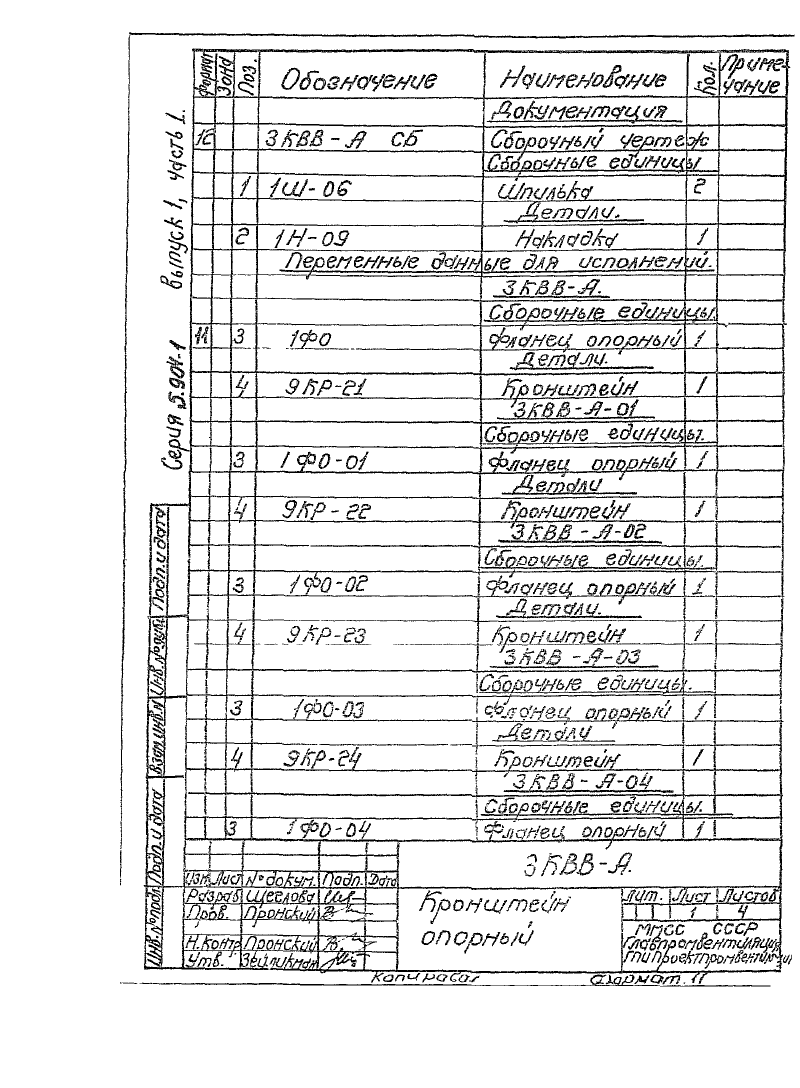 Серия 5.904-1 Выпуск 1, часть 1.
Формат Зона Поз. Обозначение Наименование Кол. Приме-
чание
Документация
12 3КВВ-А СБ Сборочный чертеж
Сборочные единицы
1 1Ш-06 Шпилька 2
Детали.
2 1Н-09 Накладка 1
Переменные данные для исполнений.
3КВВ-А.
Сборочные единицы.
11 3 1ФО Фланец опорный 1
Детали.
4 9КР-21 Кронштейн 1
3КВВ-А-01
Сборочные единицы.
3 1ФО-01 Фланец опорный 1
Детали
4 9КР-22 Кронштейн 1
3КВВ-А-02
Сборочные единицы.
3 1ФО-02 Фланец опорный 1
Детали.
4 9КР-23 Кронштейн 1
3КВВ-А-03
Сборочные единицы.
3 1ФО-03 Фланец опорный 1
Детали
4 9КР-24 Кронштейн 1
3КВВ-А-04
Сборочные единицы.
3 1ФО-04 Фланец опорный 1
Инв.№подл. Подп. и дата Взам.инв.№ Инв.№дубл. Подп. и дата
3КВВ-А.
Изм. Лист №докум. Подп. Дата
Разраб Щеглова
Пров. Пронский
Н.контр Пронский
Утв. Зейликман
Кронштейн
опорный
Лит. Лист Листов
1 4
ММСС СССР
Главпромвентиляция
ГПИ Проектпромвентиляция
Копировал Формат 11